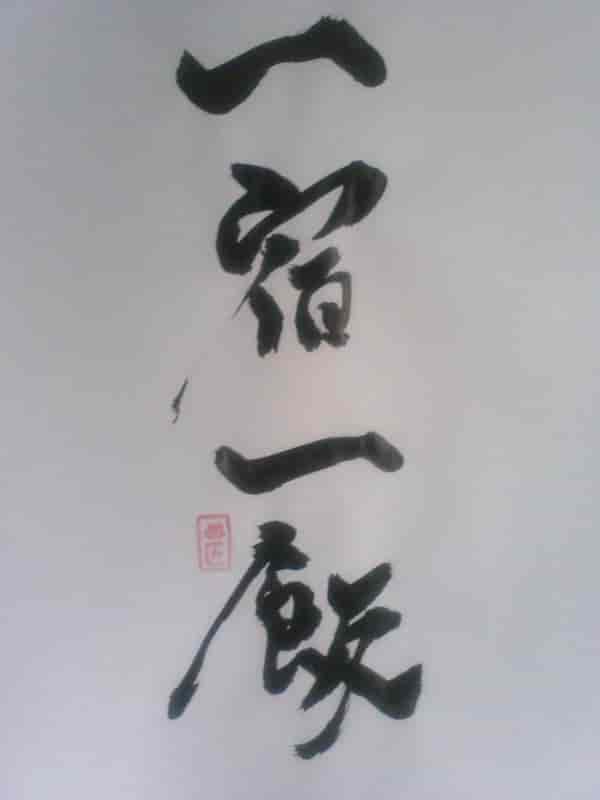 一宿一飯